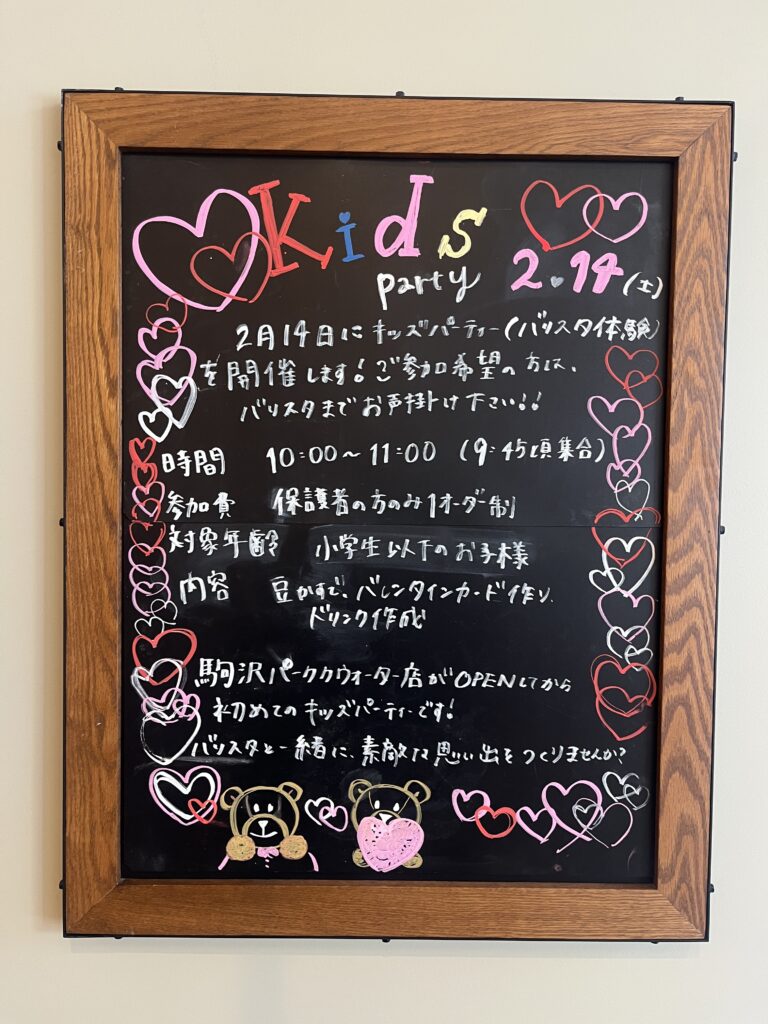 Kids
party 2.14(土)
2月14日にキッズパーティー(バリスタ体験)
を開催します!ご参加希望の方は、
バリスタまでお声掛け下さい!!
時間 10:00〜11:00 (9:45頃集合)
参加費 保護者の方のみ1オーダー制
対象年齢 小学生以下のお子様
内容 豆かすで、バレンタインカード作り、
ドリンク作成
駒沢パーククウォーター店がOPENしてから
初めてのキッズパーティーです!
バリスタと一緒に、素敵な思い出をつくりませんか?